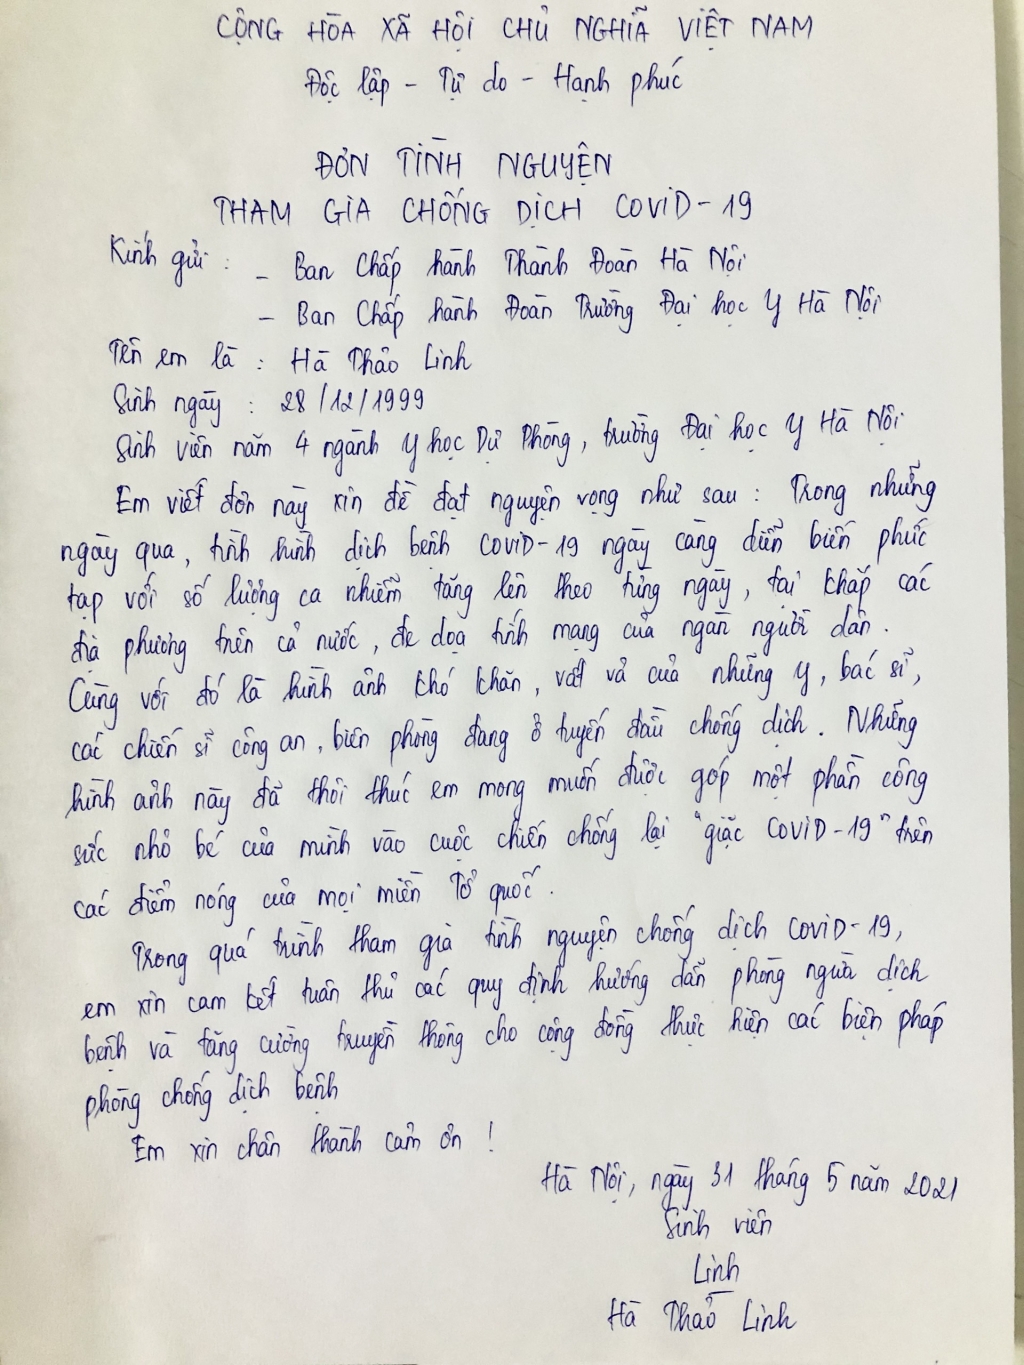 CỘNG HÒA XÃ HỘI CHỦ NGHĨA VIỆT NAM
Độc lập - Tự do - Hạnh phúc
ĐƠN TÌNH NGUYỆN
THAM GIA CHỐNG DỊCH COVID-19
Kính gửi : - Ban Chấp hành Thành Đoàn Hà Nội
- Ban Chấp hành Đoàn Trường Đại học Y Hà Nội
Tên em là : Hà Thảo Linh
Sinh ngày : 28/12/1999
Sinh viên năm 4 ngành Y học Dự Phòng, trường Đại học Y Hà Nội
Em viết đơn này xin đề đạt nguyện vọng như sau : Trong những
ngày qua, tình hình dịch bệnh COVID-19 ngày càng diễn biến phức
tạp với số lượng ca nhiễm tăng lên theo từng ngày, tại khắp các
địa phương trên cả nước, đe dọa tính mạng của ngàn người dân.
Cùng với đó là hình ảnh khó khăn, vất vả của những y, bác sĩ,
các chiến sĩ công an, biên phòng đang ở tuyến đầu chống dịch. Những
hình ảnh này đã thôi thúc em mong muốn được góp một phần công
sức nhỏ bé của mình vào cuộc chiến chống lại "giặc COVID-19" trên
các điểm nóng của mọi miền Tổ quốc.
Trong quá trình tham gia tình nguyện chống dịch COVID-19,
em xin cam kết tuân thủ các quy định hướng dẫn phòng ngừa dịch
bệnh và tăng cường truyền thông cho cộng đồng thực hiện các biện pháp
phòng chống dịch bệnh
Em xin chân thành cảm ơn !
Hà Nội, ngày 31 tháng 5 năm 2021
Sinh viên
Linh
Hà Thảo Linh